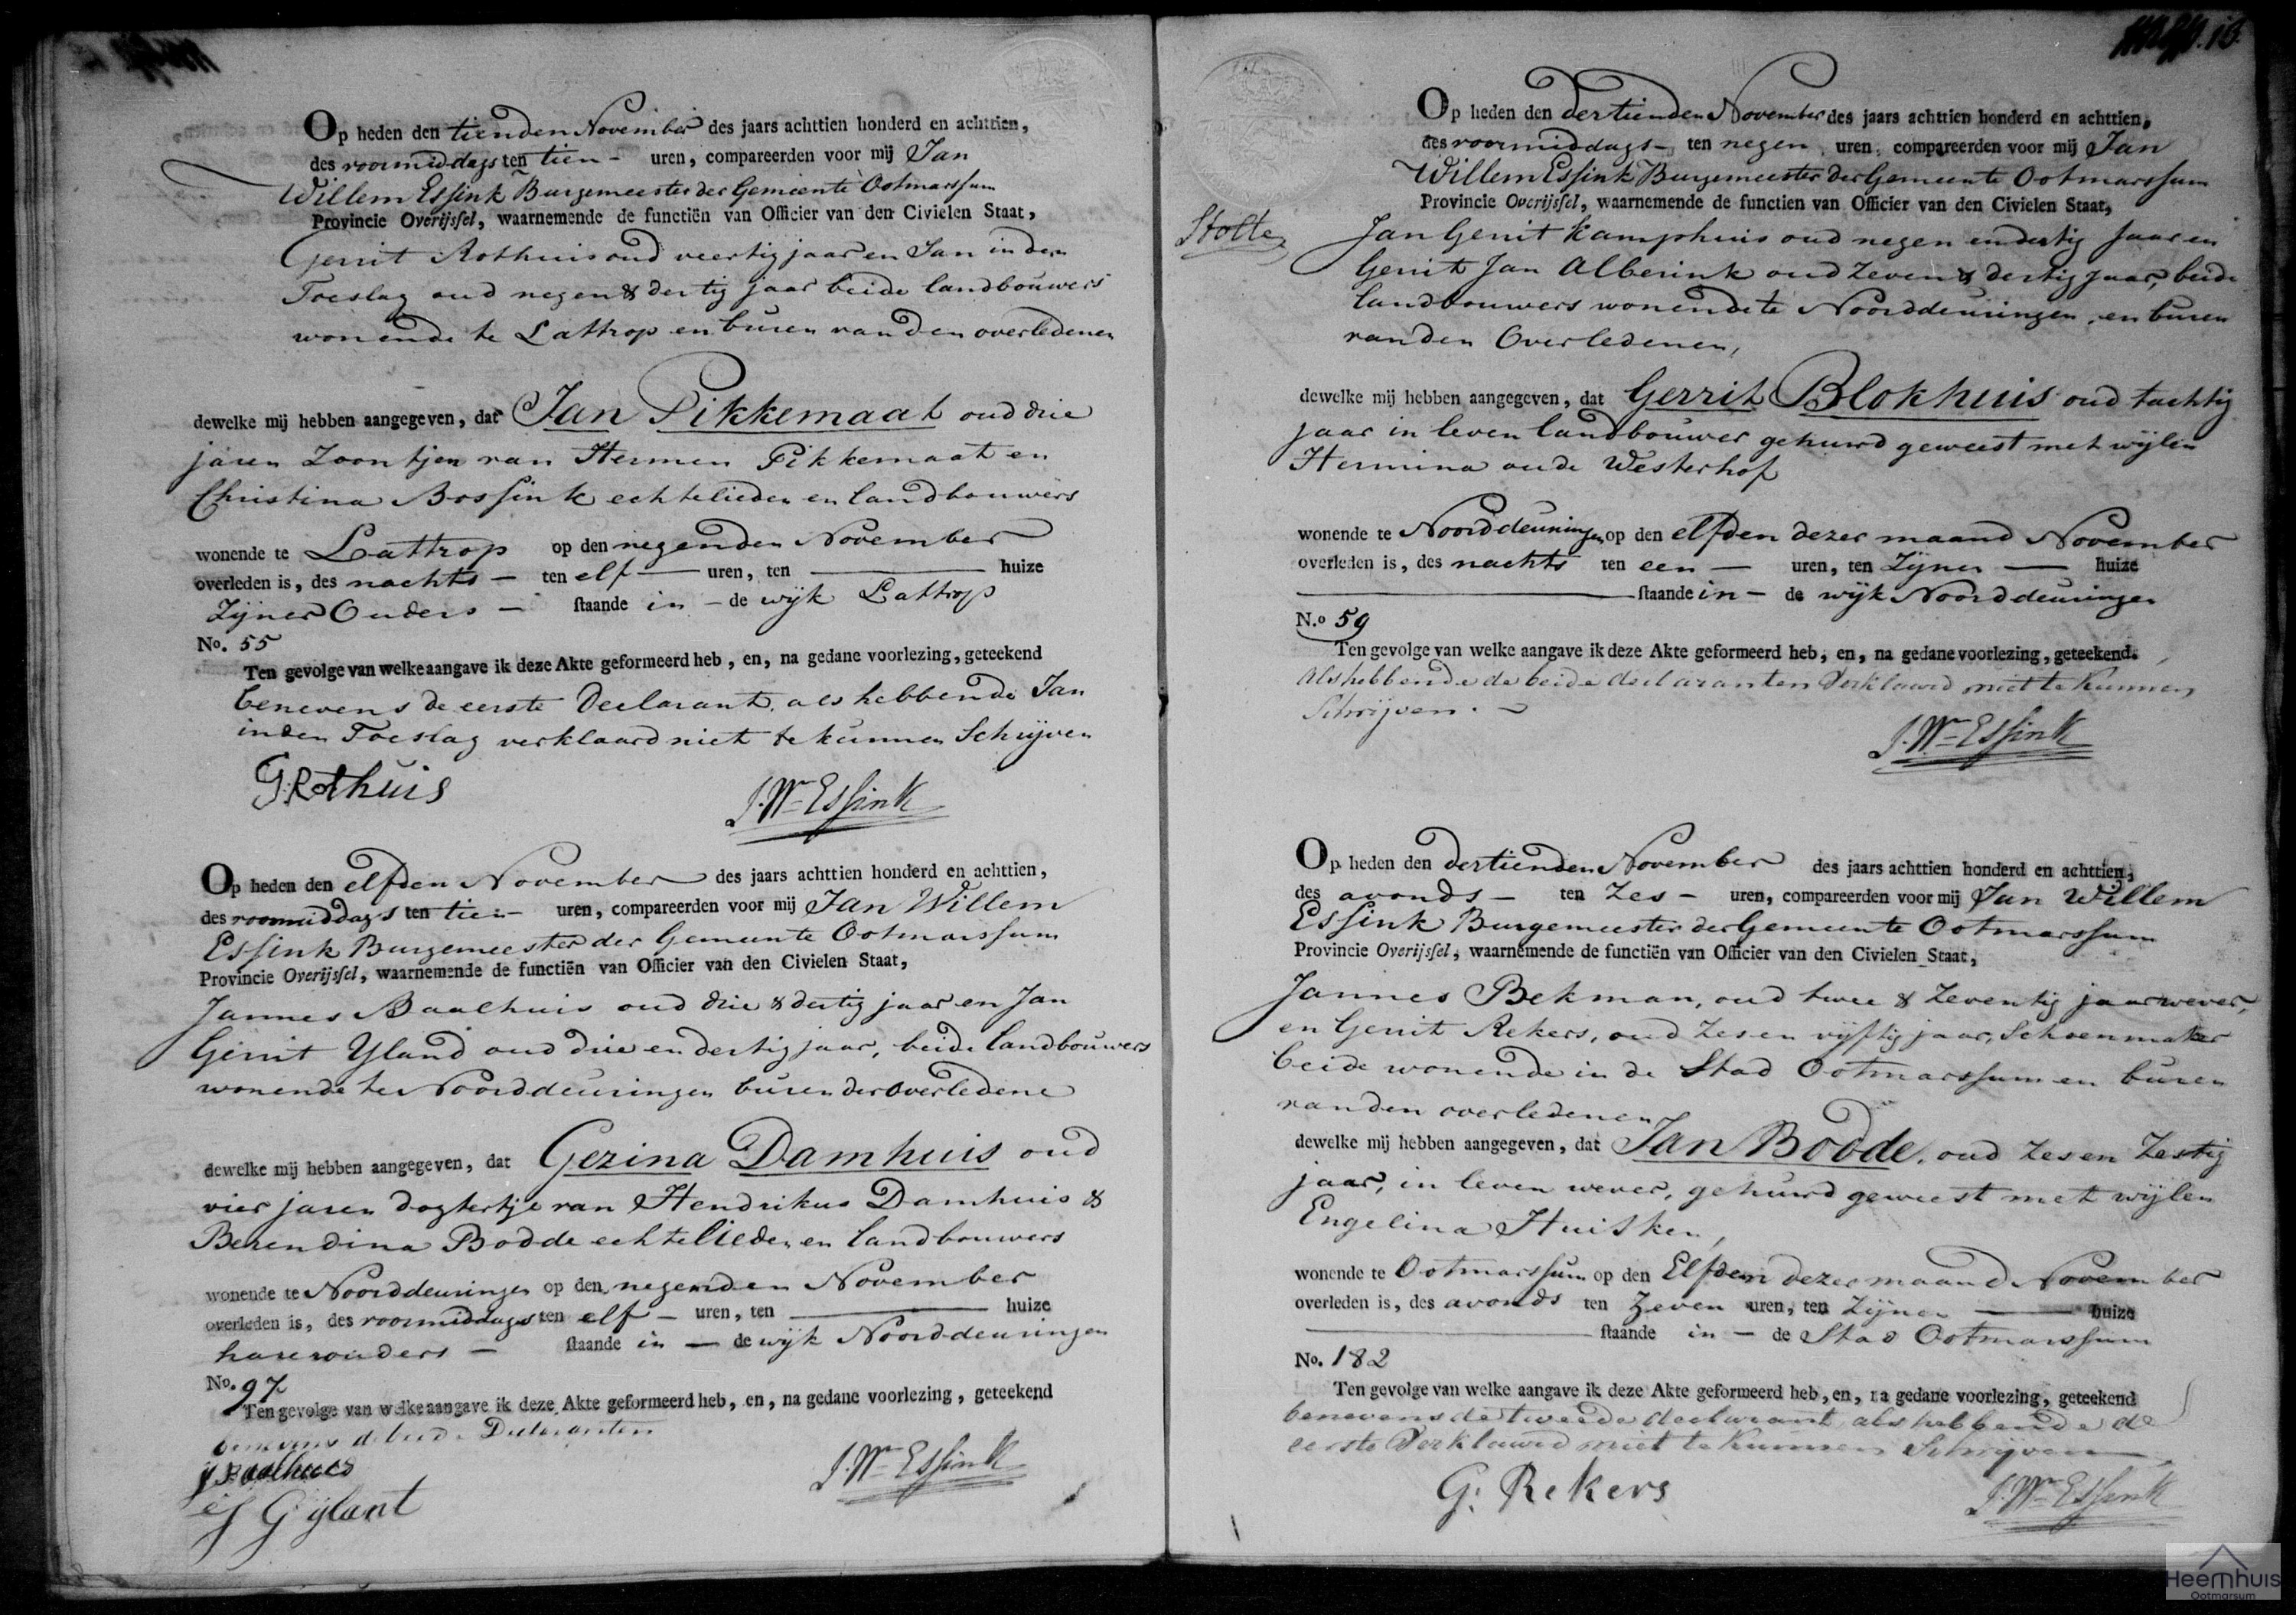 Op heden den tienden November des jaars achttien honderd en achttien,
des voormiddags ten tien - uren, compareerden voor mij Jan
Willem Essink Burgemeester der Gemeente Ootmarssum
Provincie Overijssel, waarnemende de functiën van Officier van den Civielen Staat,
Gerrit Rothuis oud veertig jaar en Jan in den
Toeslag oud negen & dertig jaar beide landbouwers
wonende te Lattrop en buren van den overledenen
dewelke mij hebben aangegeven, dat Jan Pikkemaat oud drie
jaren Zoontjen van Hermen Pikkemaat en
Christina Bossink echtelieden en landbouwers
wonende te Lattrop op den negenden November
overleden is, des nachts - ten elf - uren, ten huize
Zijner Ouders - staande in - de wijk Lattrop
No. 55
Ten gevolge van welke aangave ik deze Akte geformeerd heb, en, na gedane voorlezing, geteekend
benevens de eerste Declarant, als hebbende Jan
in den Toeslag verklaard niet te kunnen Schrijven
G. Rothuis
J. Wm Essink
Op heden den elfden November des jaars achttien honderd en achttien,
des voormiddags ten tien - uren, compareerden voor mij Jan Willem
Essink Burgemeester der Gemeente Ootmarssum
Provincie Overijssel, waarnemende de functiën van Officier van den Civielen Staat,
Jannes Baalhuis oud drie & dertig jaar en Jan
Gerrit Yland oud drie en dertig jaar, beide landbouwers
wonende te Noorddeuringen buren der Overledene
dewelke mij hebben aangegeven, dat Gezina Damhuis oud
vier jaren dogtertje van Hendrikus Damhuis &
Berendina Bodde echtelieden en landbouwers
wonende te Noorddeuringen op den negenden November
overleden is, des voormiddags ten elf - uren, ten huize
harer ouders - staande in - de wijk Noorddeuringen
No. 97
Ten gevolge van welke aangave ik deze Akte geformeerd heb, en, na gedane voorlezing, geteekend
benevens de beide Declaranten
J Baalhues
J G ijlant
J. Wm Essink
10.
Op heden den dertienden November des jaars achttien honderd en achttien,
des voormiddags - ten negen uren, compareerden voor mij Jan
Willem Essink Burgemeester der Gemeente Ootmarssum
Provincie Overijssel, waarnemende de functien van Officier van den Civielen Staat,
Stolte
Jan Gerrit Kamphuis oud negen en dertig Jaar en
Gerrit Jan Alberink oud Zeven & dertig Jaar, beide
landbouwers wonende te Noorddeuringen, en buren
van den Overledenen,
dewelke mij hebben aangegeven, dat Gerrit Blokhuis oud tachtig
jaar in leven landbouwer gehuurd geweest met wijlen
Hermina oude Westerhof
wonende te Noorddeuningen op den elfden dezer maand November
overleden is, des nachts ten een - uren, ten Zijner - huize
staande in - de wijk Noorddeuringen
N.o 59
Ten gevolge van welke aangave ik deze Akte geformeerd heb, en, na gedane voorlezing, geteekend.
Als hebbende de beide declaranten Verklaard niet te Kunnen
Schrijven. -
J. Wm Essink
Op heden den dertienden November des jaars achttien honderd en achttien,
des avonds - ten Zes - uren, compareerden voor mij Jan Willem
Essink Burgemeester der Gemeente Ootmarssum
Provincie Overijssel, waarnemende de functiën van Officier van den Civielen Staat,
Jannes Bekman, oud twee & Zeventig jaar wever,
en Gerrit Rekers, oud Zes en vijftig jaar, Schoenmaker
beide wonende in de Stad Ootmarssum en buren
van den overledenen
dewelke mij hebben aangegeven, dat Jan Bodde, oud Zes en Zestig
jaar, in leven wever, gehuurd geweest met wijlen
Engelina Huisken,
wonende te Ootmarssum op den Elfden dezer maand November
overleden is, des avonds ten Zeven uren, ten Zijner - huize
staande in - de Stad Ootmarssum
No. 182
Ten gevolge van welke aangave ik deze Akte geformeerd heb, en, na gedane voorlezing, geteekend
benevens de tweede declarant, als hebbende de
eerste Verklaard niet te Kunnen Schrijven
G: Rekers
J. Wm Essink
Heemhuis
Ootmarsum